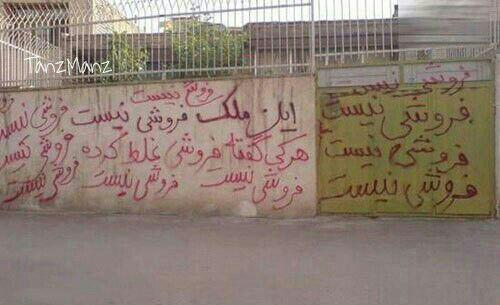 TanzManz
فروشی نیست
فروشی نیست
این ملک فروشی نیست
فروشی نیست
فروشی نیست
هرکی گفته فروشی غلط کرده
فروشی نیست
فروشی نیست
فروشی نیست
فروشی نیست
فروشی نیست
فروشی نیست
فروشی نیست